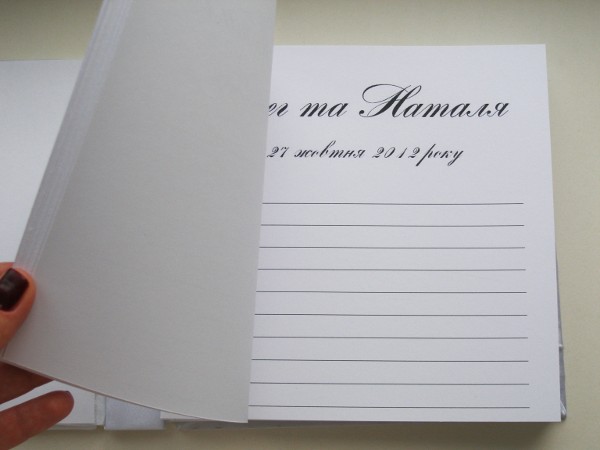 та Наталя
27 жовтня 2012 року